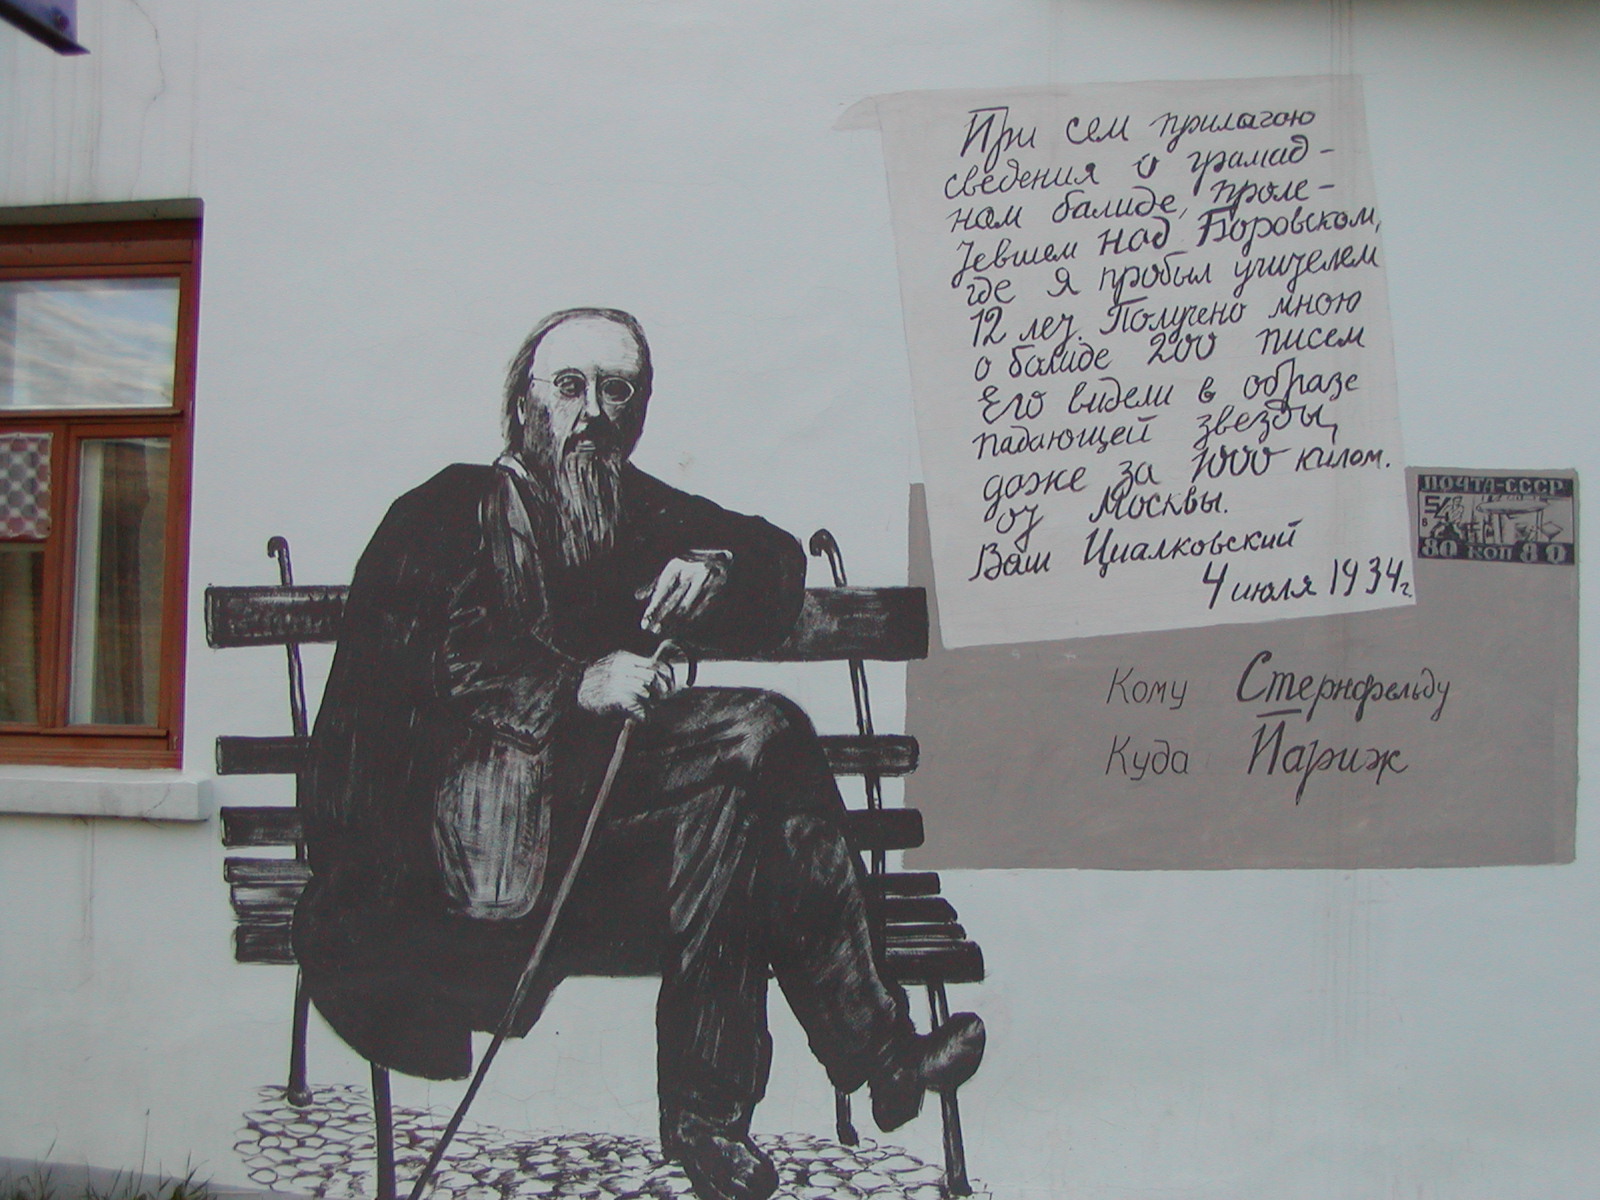 При сем прилагаю
сведения о грамад-
ном балиде, проле-
тевшем над Боровском,
где я пробыл учителем
12 лет. Получено мною
о балиде 200 писем
Его видели в образе
падающей звезды,
даже за 1000 килом.
от Москвы.
Ваш Циалковский
4 июля 1934г.
ПОЧТА-СССР
80 КОП 80
Кому Стернфельду
Куда Париж